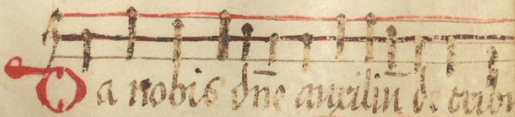 Da nobis dñe auxiliũ de tribu